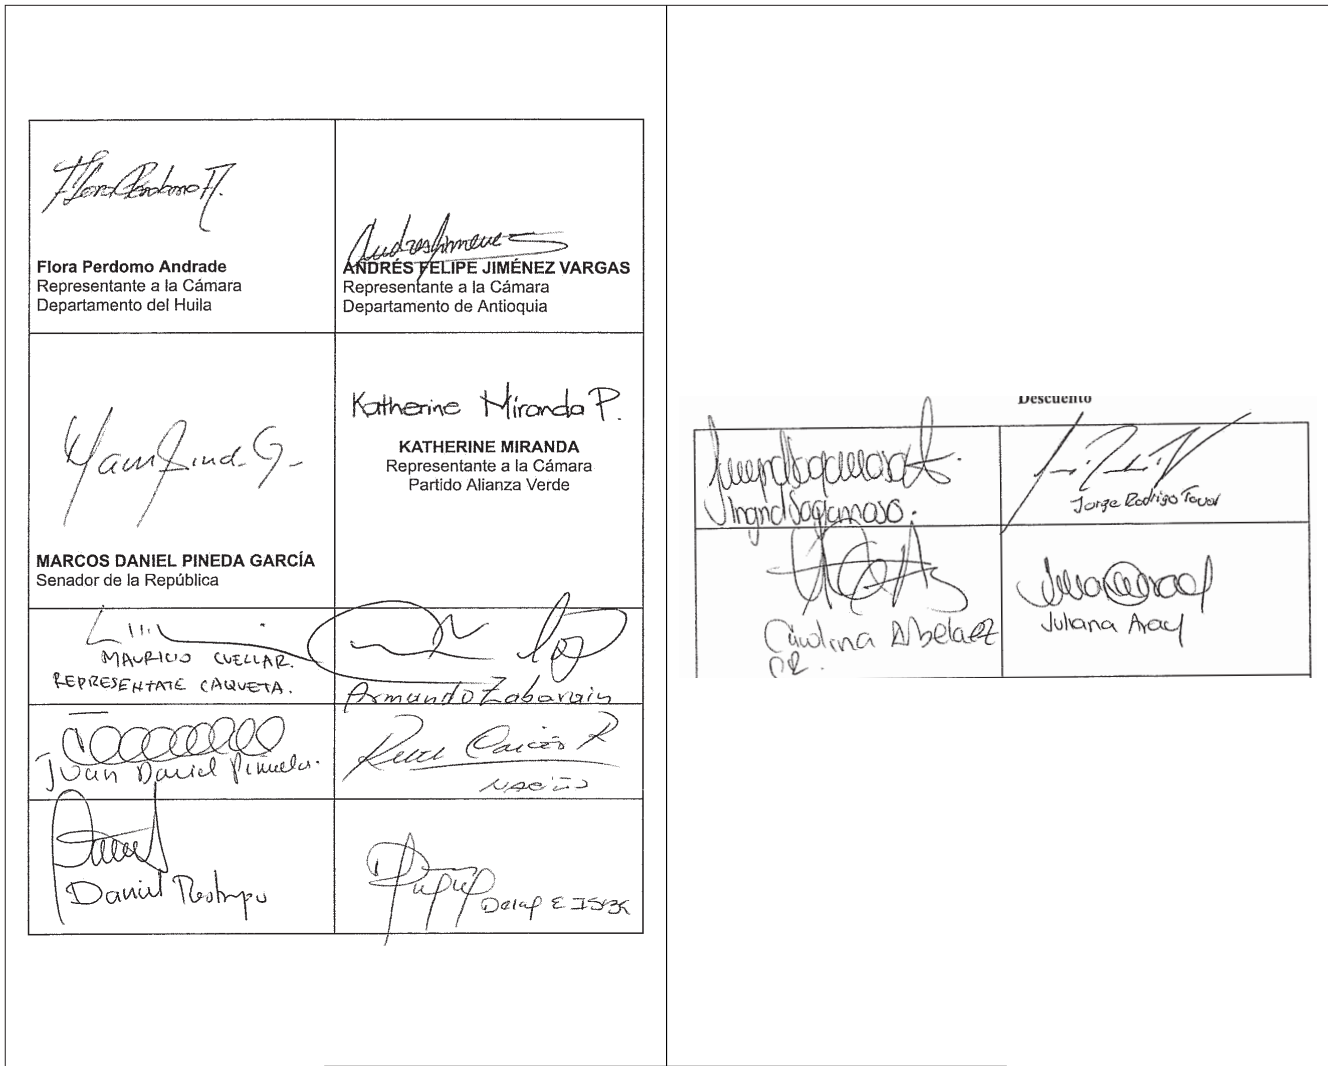 Flora Perdomo A.
Flora Perdomo Andrade
Representante a la Cámara
Departamento del Huila
Andres Jimenez
ANDRÉS FELIPE JIMÉNEZ VARGAS
Representante a la Cámara
Departamento de Antioquia
MARCOS DANIEL PINEDA GARCÍA
Senador de la República
Katherine Miranda P.
KATHERINE MIRANDA
Representante a la Cámara
Partido Alianza Verde
MAURICIO CUELLAR.
REPRESENTATE CAQUETA.
Armando Zabarain
Juan Daniel
Daniel Restrepo
Descuento
Ingrid Sogamoso.
Jorge Rodrigo Tovar
Carolina Arbelaez
CR.
Juliana Aray